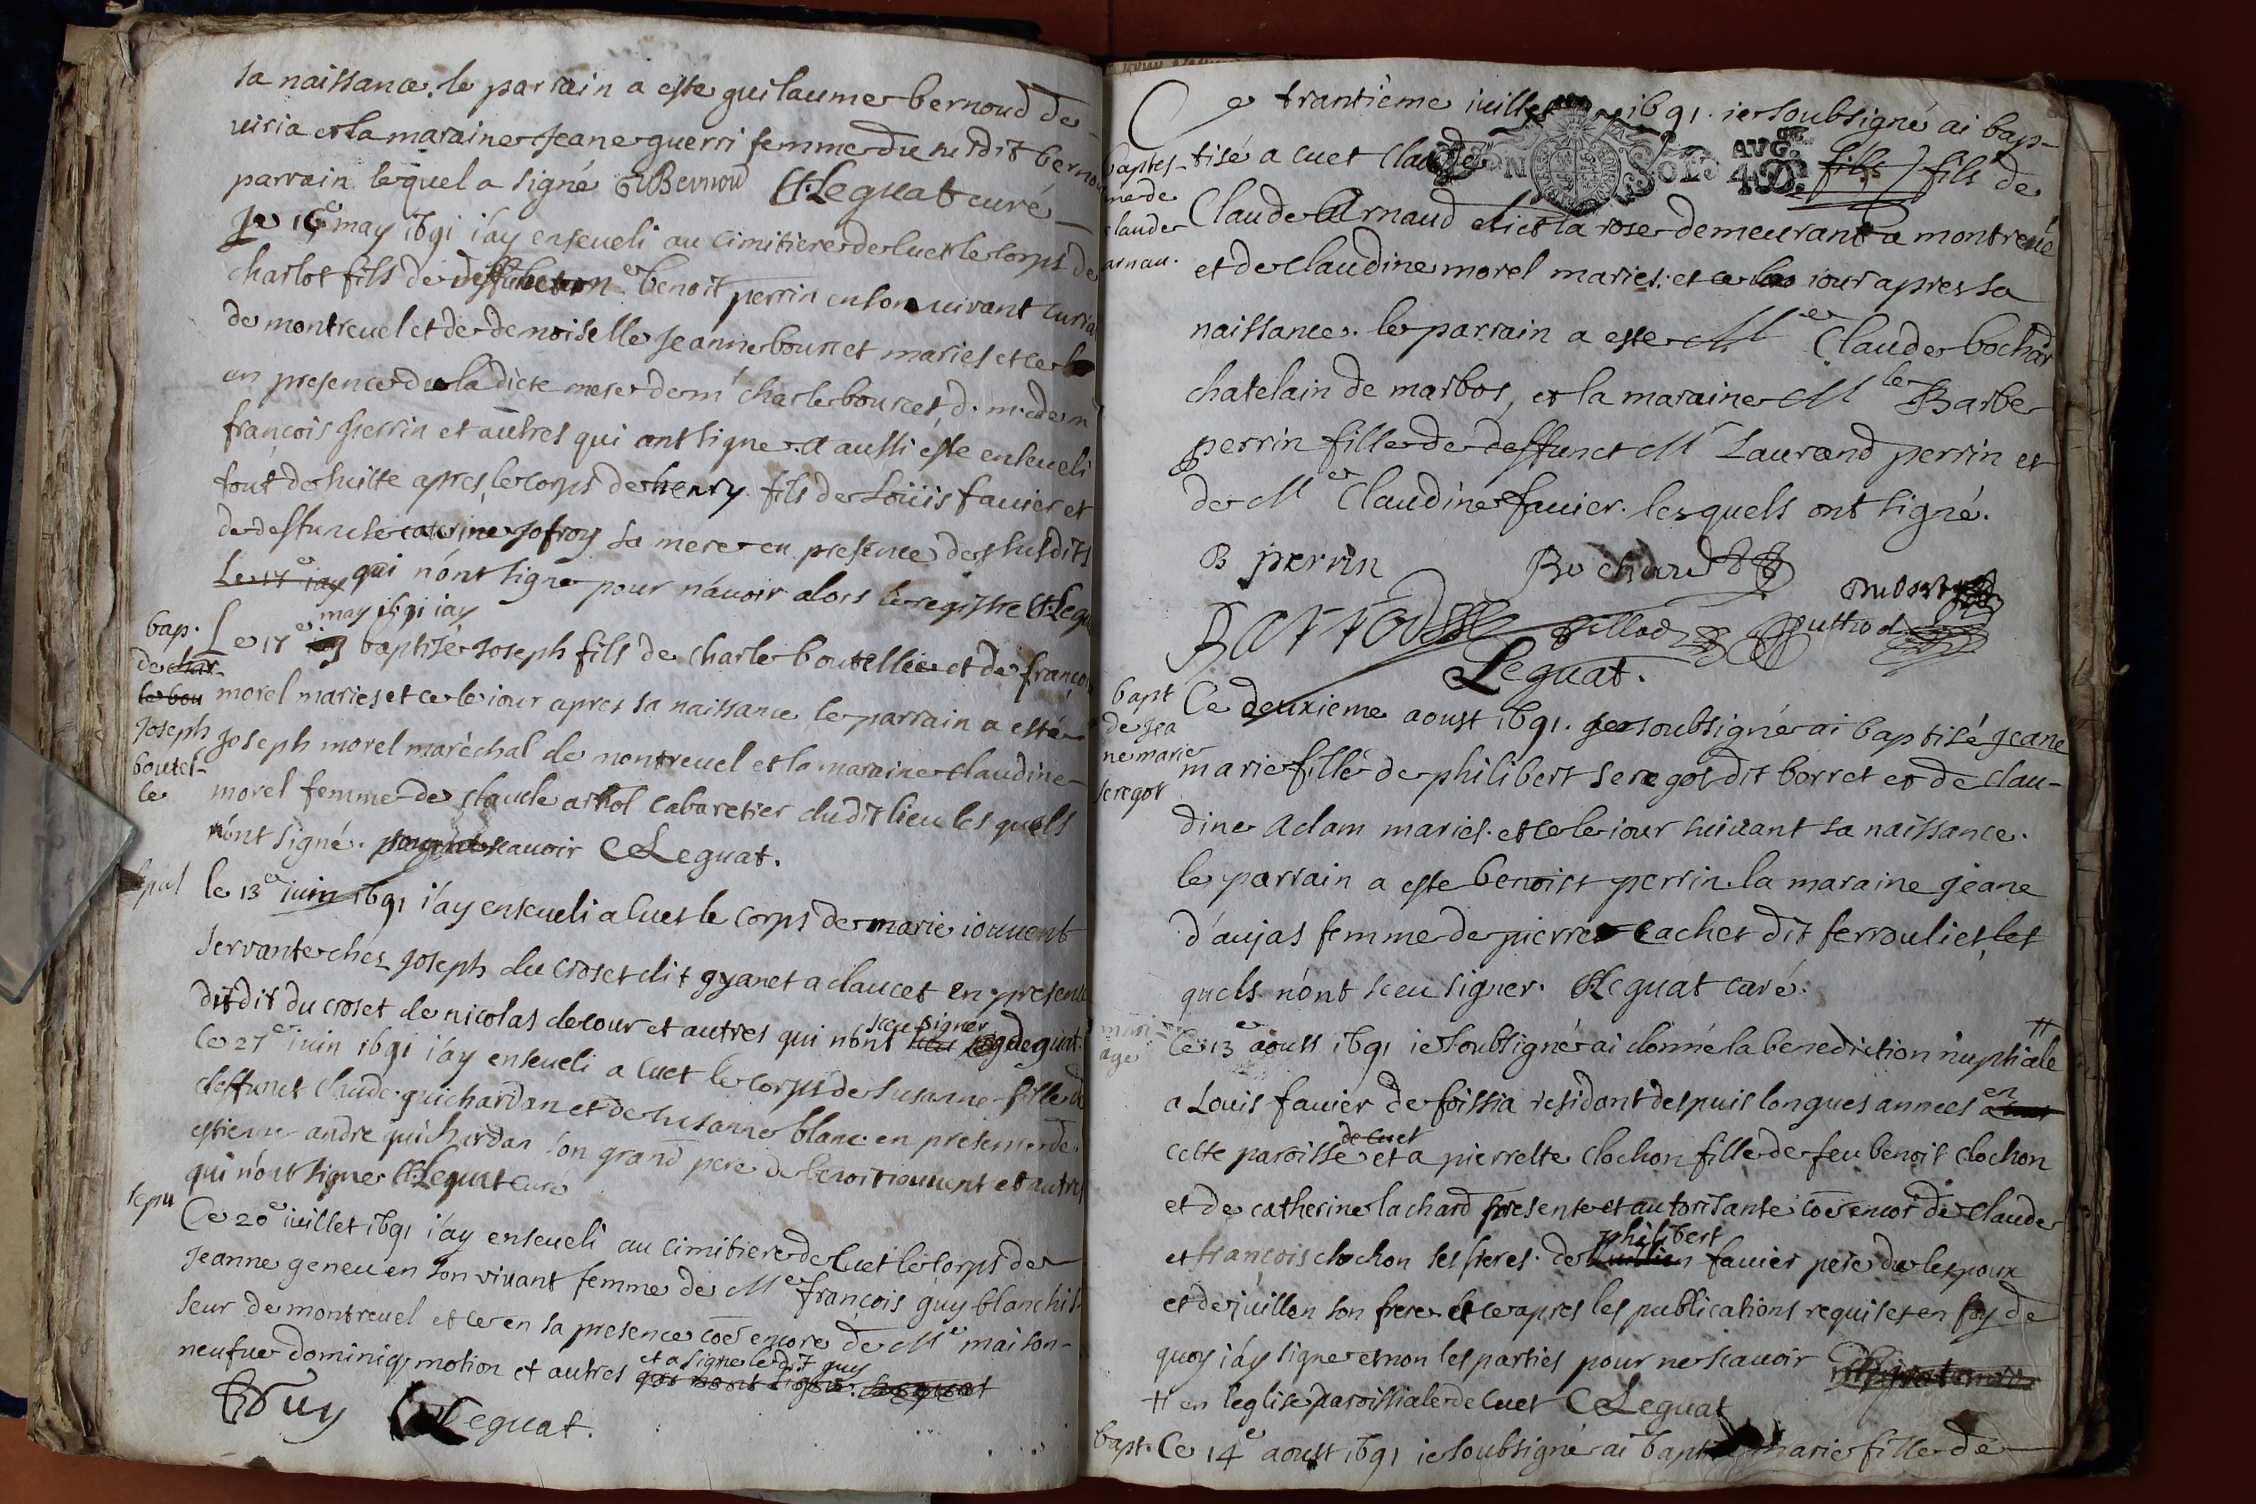 sa naissance. le parrain a este guilaume bernoud de
viria et la maraine Jeane guerri femme du susdit bernou
parrain lequel a signé GBernoud CLeguat curé
Le 16e may 1691 i'ay enseueli au cimitiere de Cuet le corps de
charlot fils de deffunct benoit perrin en son uivant curia
de montreuel et de demoiselle Jeanne bourcet maries et ce le
en presence de la dicte mere de mr charle bource, d. m. et de mr
françois perrin et autres qui ont signe. a aussi este enseueli
tout de suitte apres le corps de henry fils de Loüis fauier et
de deffuncte caterine Jofroy sa mere en presence des susdits
Le 17e iay qui n'ont signe pour n'auoir alors le registre CLegu
bap. de char le bou Joseph boutel-le
Le 17e may 1691 iay baptisé Joseph fils de charle boutellie et de francoi
morel maries et ce le iour apres sa naissance le parrain a esté
Joseph morel maréchal de montreuel et la maraine claudine
morel femme de claude arnol cabaretier dudit lieu lesquels
n'ont signé. scauoir CLeguat.
sepul
le 13e iuin 1691 i'ay enseueli a Cuet le corps de marie iouuent
servante chez Joseph du croset dit gyanet a claucet en presence
dudit du croset de nicolas decour et autres qui n'ont sceu signer Leguat.
Le 27e iuin 1691 i'ay enseueli a Cuet le corps de susanne fille de
deffunct claude guichardan et de susanne blanc en presence de
estienne andre guichardan son grand pere de benoit iouuent et autres
qui n'ont signe CLeguat curé
sepu
Ce 20e iuillet 1691 i'ay enseueli au cimitiere de Cuet le corps de
Jeanne geneu en son vivant femme de Me françois guy blanchis-
seur de montreuel et ce en sa presence coe encore de Me maison-
neufue dominiq motion et autres et a signe ledit guy
Guy CLeguat.
Ce trantième iuillet 1691. ie soubsigné ai bap-
LYON SOLS AVG. 40D.
baptes-me de claude arnau.
tisé a cuet Claude fils fils de
Claude Arnaud dict la rose demeurant a montreuel
et de claudine morel maries. et ce le iour apres sa
naissance. le parrain a este Me Claude bochard
chatelain de marbos, et la maraine Mlle Barbe
perrin fille de deffunct Mr Laurand perrin et
de Me Claudine fauier. lesquels ont signé.
B perrin Bochard
Leguat.
bapt de Jeanne marie seregot
Ce deuxieme aoust 1691. Je soubsigné ai baptisé Jeane
marie fille de philibert seregot dit borret et de clau-
dine Adam maries. et ce le iour suivant sa naissance.
le parrain a este benoist perrin. la maraine jeane
d'aujas femme de pierre cachet dit ferrouliet, les
quels n'ont sceu signer. CLeguat curé.
mari age
Ce 13e aoust 1691 ie soubsigné ai donné la benediction nuptiale #
a Louis fauier de foissia residant despuis longues annees en
cette paroisse de cuet et a pierrette clochon fille de feu benoit clochon
et de catherine lachard presente et autorisante coe encor de claude
et françois clochon ses freres. de philibert fauier pere de lespoux
et de juillen son frere et ce apres les publications requises en foy de
quoy i'ay signe et non les parties pour ne scauoir
# en leglise paroissiale de Cuet CLeguat
bapt. Ce 14e aoust 1691 ie soubsigné ai baptisé marie fille de